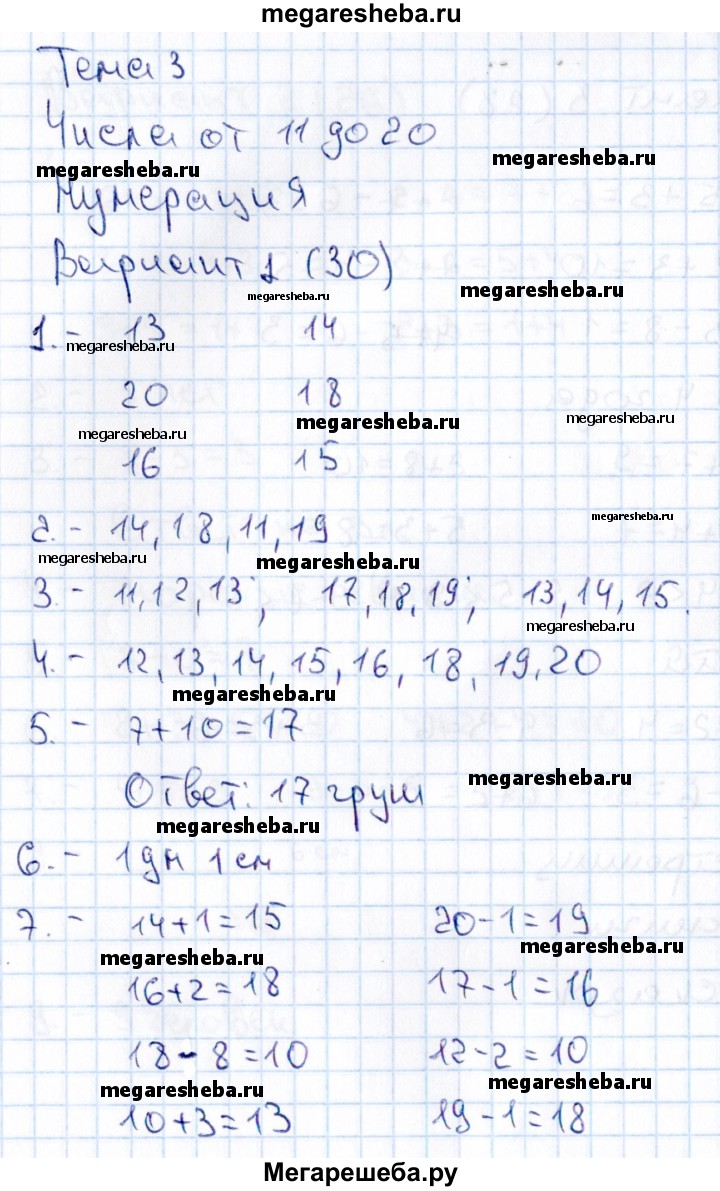 megaresheba.ru
Тема 3
Числа от 11 до 20
megaresheba.ru
megaresheba.ru
Нумерация
Вариант 1 (30)
megaresheba.ru
megaresheba.ru
1. - 13 14
megaresheba.ru
20 18
megaresheba.ru
megaresheba.ru
megaresheba.ru
16 15
2. - 14, 18, 11, 19
megaresheba.ru
megaresheba.ru
megaresheba.ru
3. - 11, 12, 13; 17, 18, 19; 13, 14, 15.
megaresheba.ru
4. - 12, 13, 14, 15, 16, 18, 19, 20
megaresheba.ru
5. - 7+10=17
megaresheba.ru
Ответ: 17 груш
megaresheba.ru
6. - 1 дм 1 см
7. - 14+1=15 20-1=19
megaresheba.ru
megaresheba.ru
16+2=18 17-1=16
18-8=10 12-2=10
megaresheba.ru
megaresheba.ru
10+3=13 19-1=18
Мегарешеба.ру